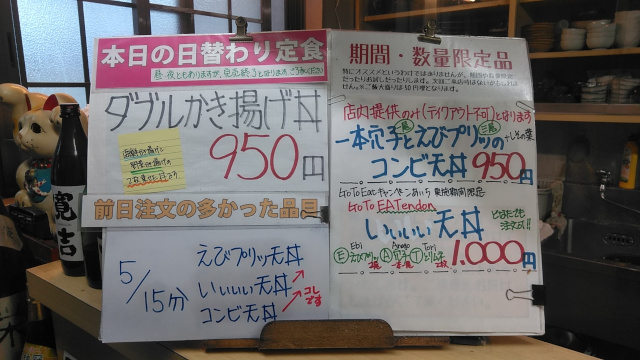 本日の日替わり定食
ダブルかき揚げ丼
950円
前日注文の多かった品目
5/15分
えびプリッ天丼
いいいい天丼
コンビ天丼
コレです
寛吉
期間・数量限定品
店内提供のみ(テイクアウト不可)となります
一本穴子とえびプリッの
コンビ天丼 950円
GoToEatキャンペーンあいち 実施期間限定
GoTo EATendon
いいいい天丼
1.000円
Ebi Anago Tori